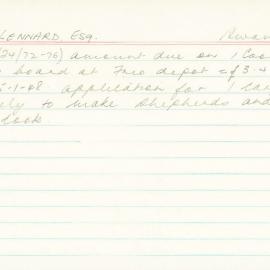 LENNARD ESQ.
24/72-76) amount due on 1 
board at Free depot = £3.4
-1-48 application for 1
ly to make Shepherds and
Cook.